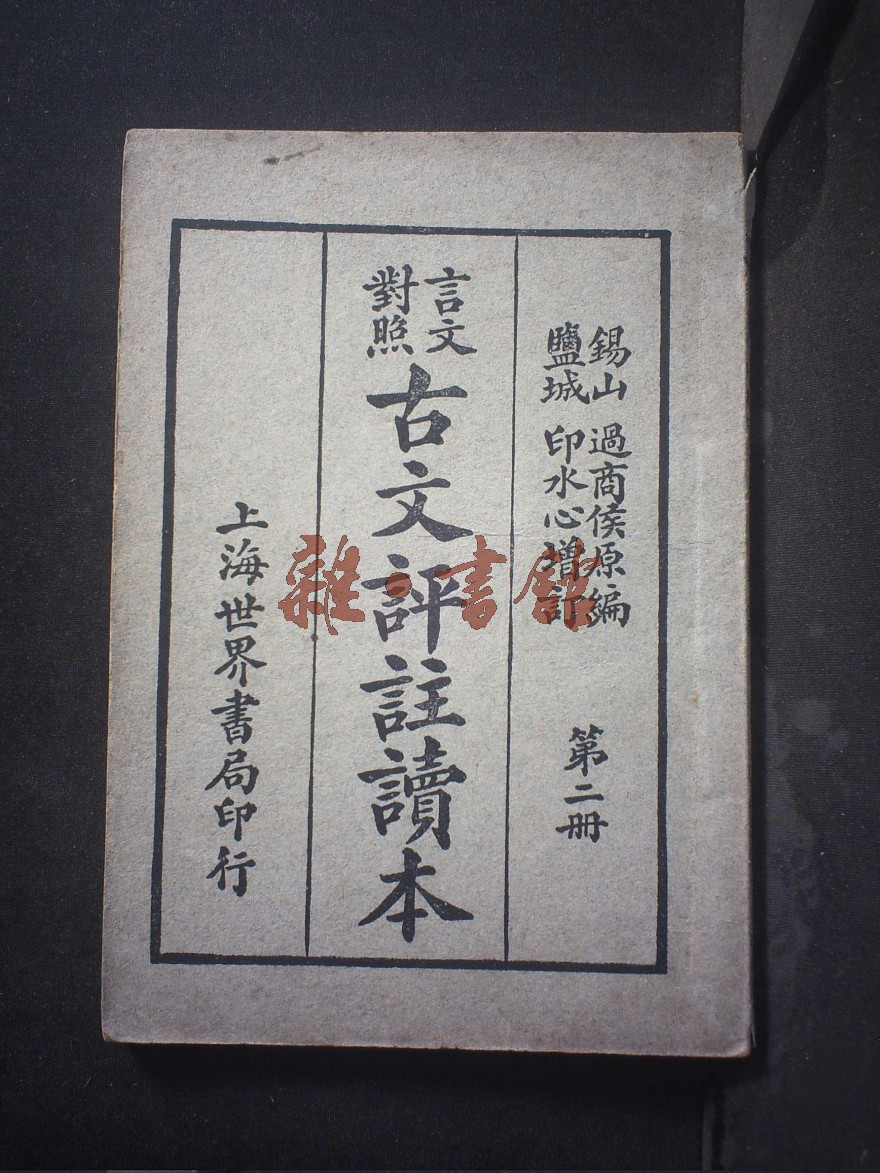 錫山 過商侯原編
鹽城 印水心增訂
第二册
言文
對照
古文評註讀本
上海世界書局印行
雜·書館